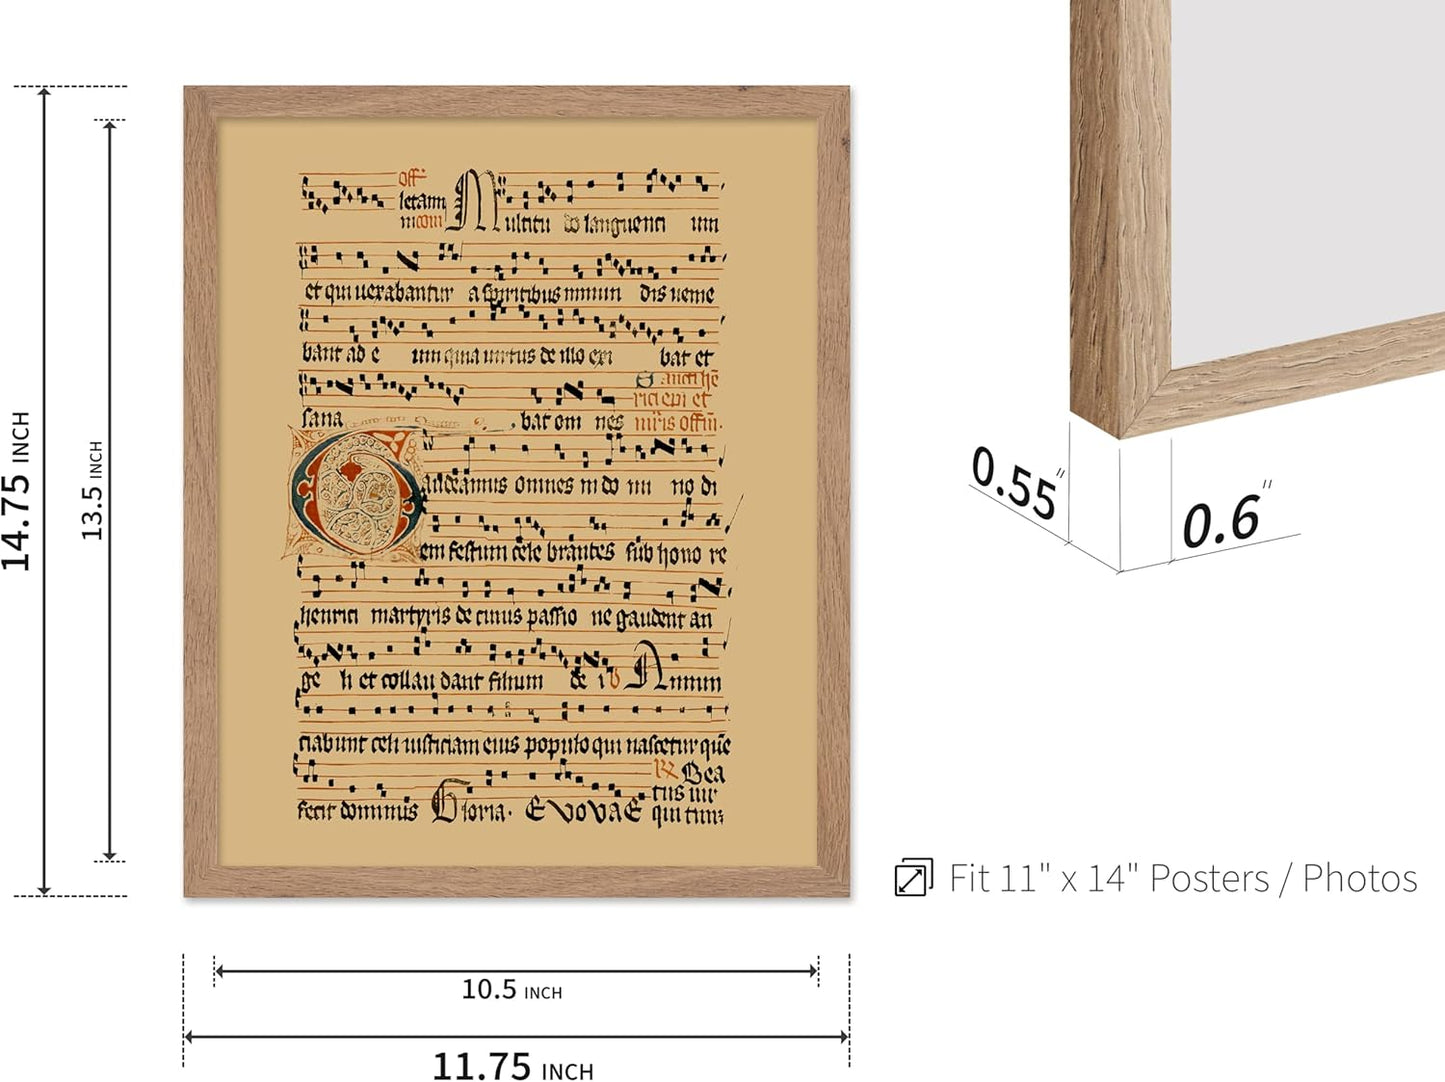 off
letam
m com
Multitu do languenti um
et qui vexabantur a spiritibus inmun dis veme
bant ad e um quia virtus de illo exi bat et
sancti hē
rici epi et
sana bat om nes
mr̄is offm̄.
Gaudeamus omnes in do mi no di
em festum cele brantes sub hono re
henrici martyris de cuius passio ne gaudent an
ge li et collau dant filium de i
Annun
ciabunt celi iusticiam eius populo qui nascetur quē
Bea
tus vir
fecit dominus Gloria. EVOVAE qui tim
14.75 INCH
13.5 INCH
10.5 INCH
11.75 INCH
0.55"
0.6"
Fit 11" x 14" Posters / Photos